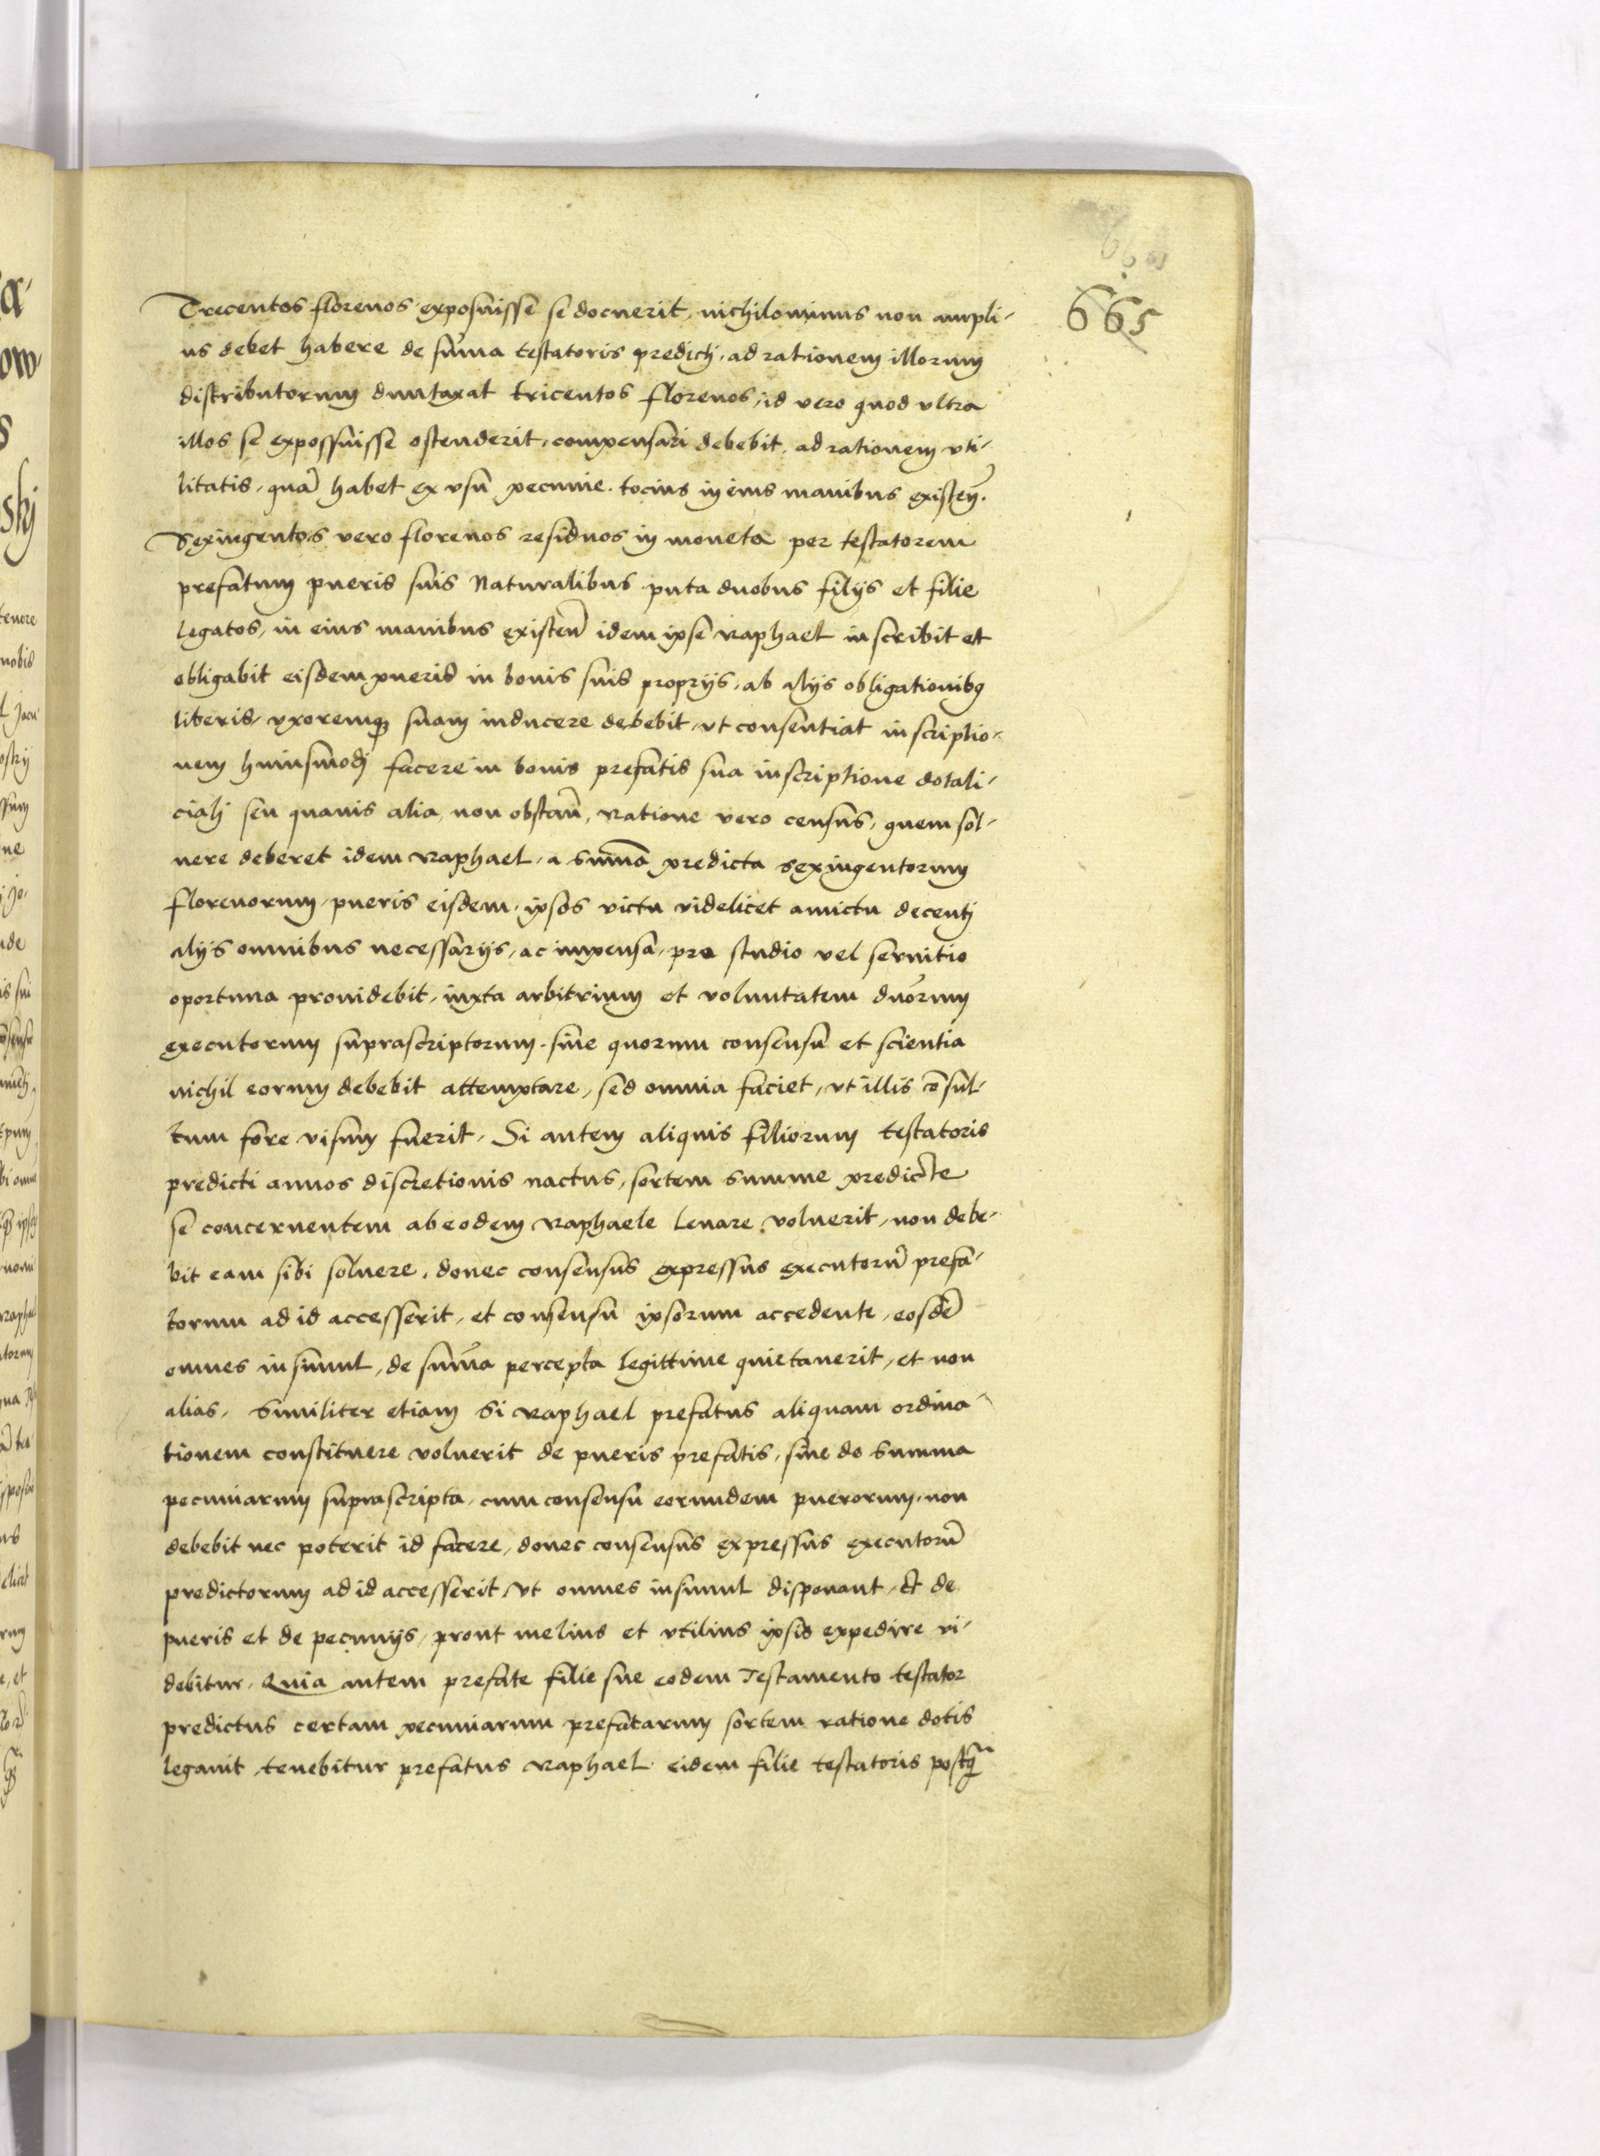 665
Trecentos florenos exposuisse se docuerit, nichilominus non ampli-
us debet habere de sum̃a testatoris predicti, ad rationem illorum
distributorum duntaxat tricentos florenos, id vero quod vltra
illos se expossuisse ostenderit, compensari debebit, ad rationem vti-
litatis, quam̃ habet ex vsu pecunie tocius in eius manibus existeñ.
Sexingentos vero florenos residuos in moneta per testatorem
prefatum pueris suis Naturalibus puta duobus filijs et filie
Legatos, in eius manibus existeñ idem ipse Raphael inscribit et
obligabit eisdem pueris in bonis suis proprijs, ab alijs obligationibq
liberis, vxoremq suam inducere debebit, vt consentiat inscriptio-
nem huiusmodi facere in bonis prefatis sua inscriptione dotali-
ciali seu quauis alia, non obstañ, Ratione vero census, quem sol-
uere deberet idem Raphael, a sum̃a predicta sexingentorum
florenorum, pueris eisdem, ipsos victu videlicet amictu decenti
alijs omnibus necessarijs, ac impensa, pro studio vel seruitio
oportuna prouidebit, iuxta arbitrium et voluntatem duorum
executorum suprascriptorum, sine quorum consensu et scientia
nichil eorum debebit attemptare, sed omnia faciet, vt illis cõsul-
tum fore visum fuerit, Si autem aliquis filiorum testatoris
predicti annos discretionis nactus, sortem summe predicte
se concernentem ab eodem Raphaele Leuare voluerit, non debe-
bit eam sibi soluere, donec consensus expressus executorũ prefa-
torum ad id accesserit, et consensu ipsorum accedente, eosdẽ
omnes insimul, de sum̃a percepta Legittime quietauerit, et non
alias, Similiter etiam Si Raphael prefatus aliquam ordina-
tionem constituere voluerit de pueris prefatis, siue de summa
pecuniarum suprascripta, cum consensu eorundem puerorum, non
debebit nec poterit id facere, donec consensus expressus executorũ
predictorum ad id accesserit, vt omnes insimul disponant, Et de
pueris et de pecunijs, prout melius et vtilius ipsis expedire vi-
debitur, Quia autem prefate filie sue eodem Testamento testator
predictus certam pecuniarum prefatarum sortem ratione dotis
legauit, tenebitur prefatus Raphael eidem filie testatoris postq̃